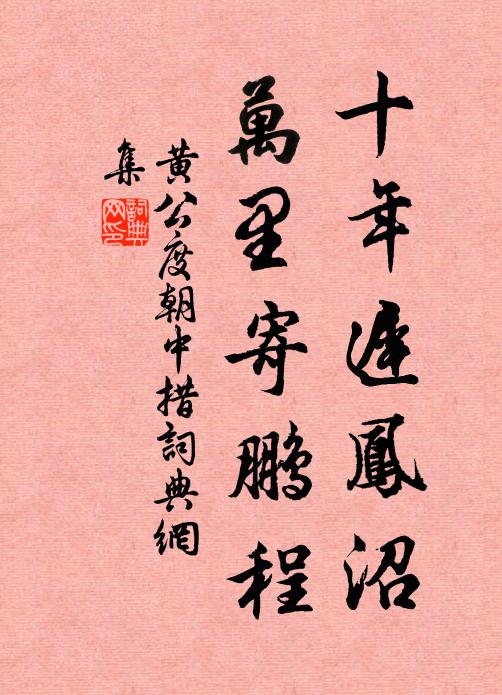 十年遲鳳沼
萬里寄鵬程
黃公度朝中措詞典網
集
詞典
网印